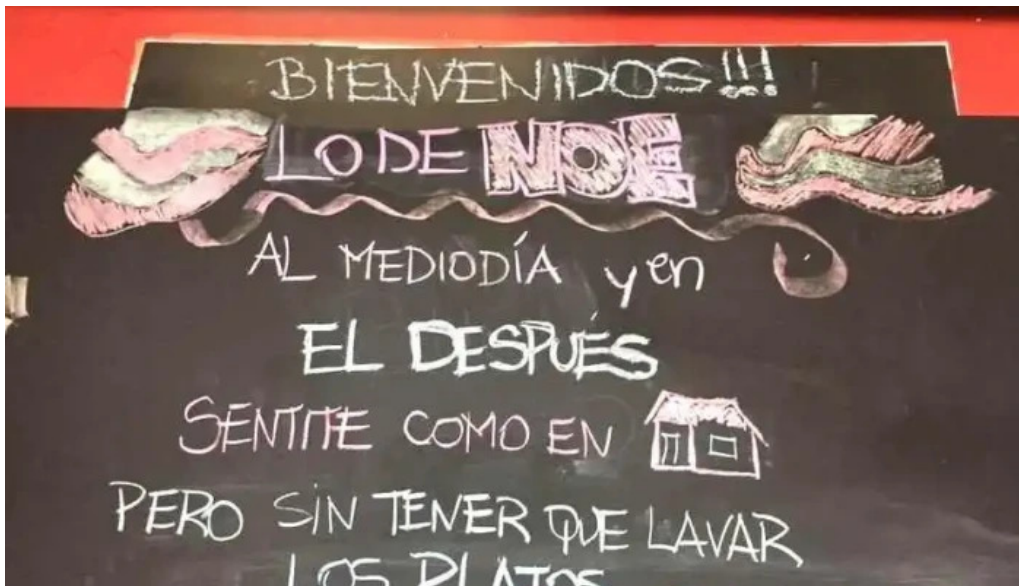 BIENVENIDOS!!!
LO DE NOE
AL MEDIODÍA y en
EL DESPUÉS
SENTITE COMO EN
PERO SIN TENER QUE LAVAR
LOS PLATOS